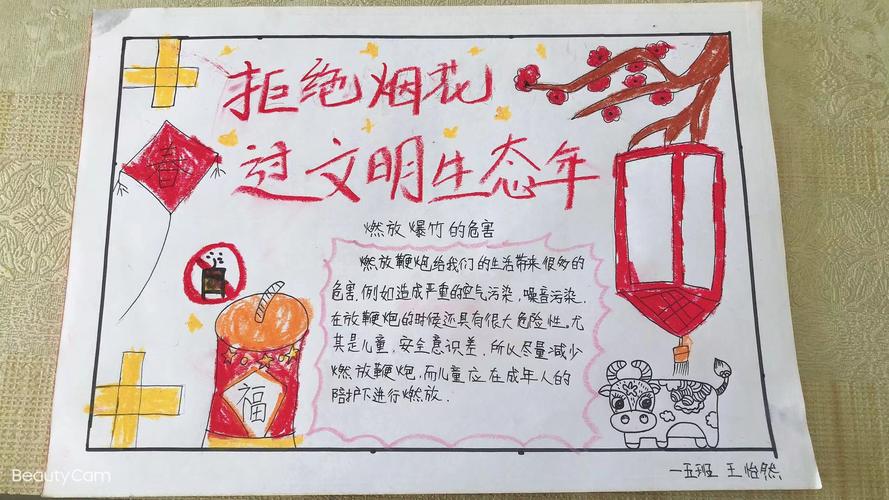 拒绝烟花
过文明生态年
春
燃放爆竹的危害
燃放鞭炮给我们的生活带来很多的
危害,例如造成严重的空气污染,噪音污染.
在放鞭炮的时候还具有很大危险性。尤
其是儿童,安全意识差,所以尽量减少
燃放鞭炮,而儿童应在成年人的
陪护下进行燃放.
福
一五班 王怡然
BeautyCam